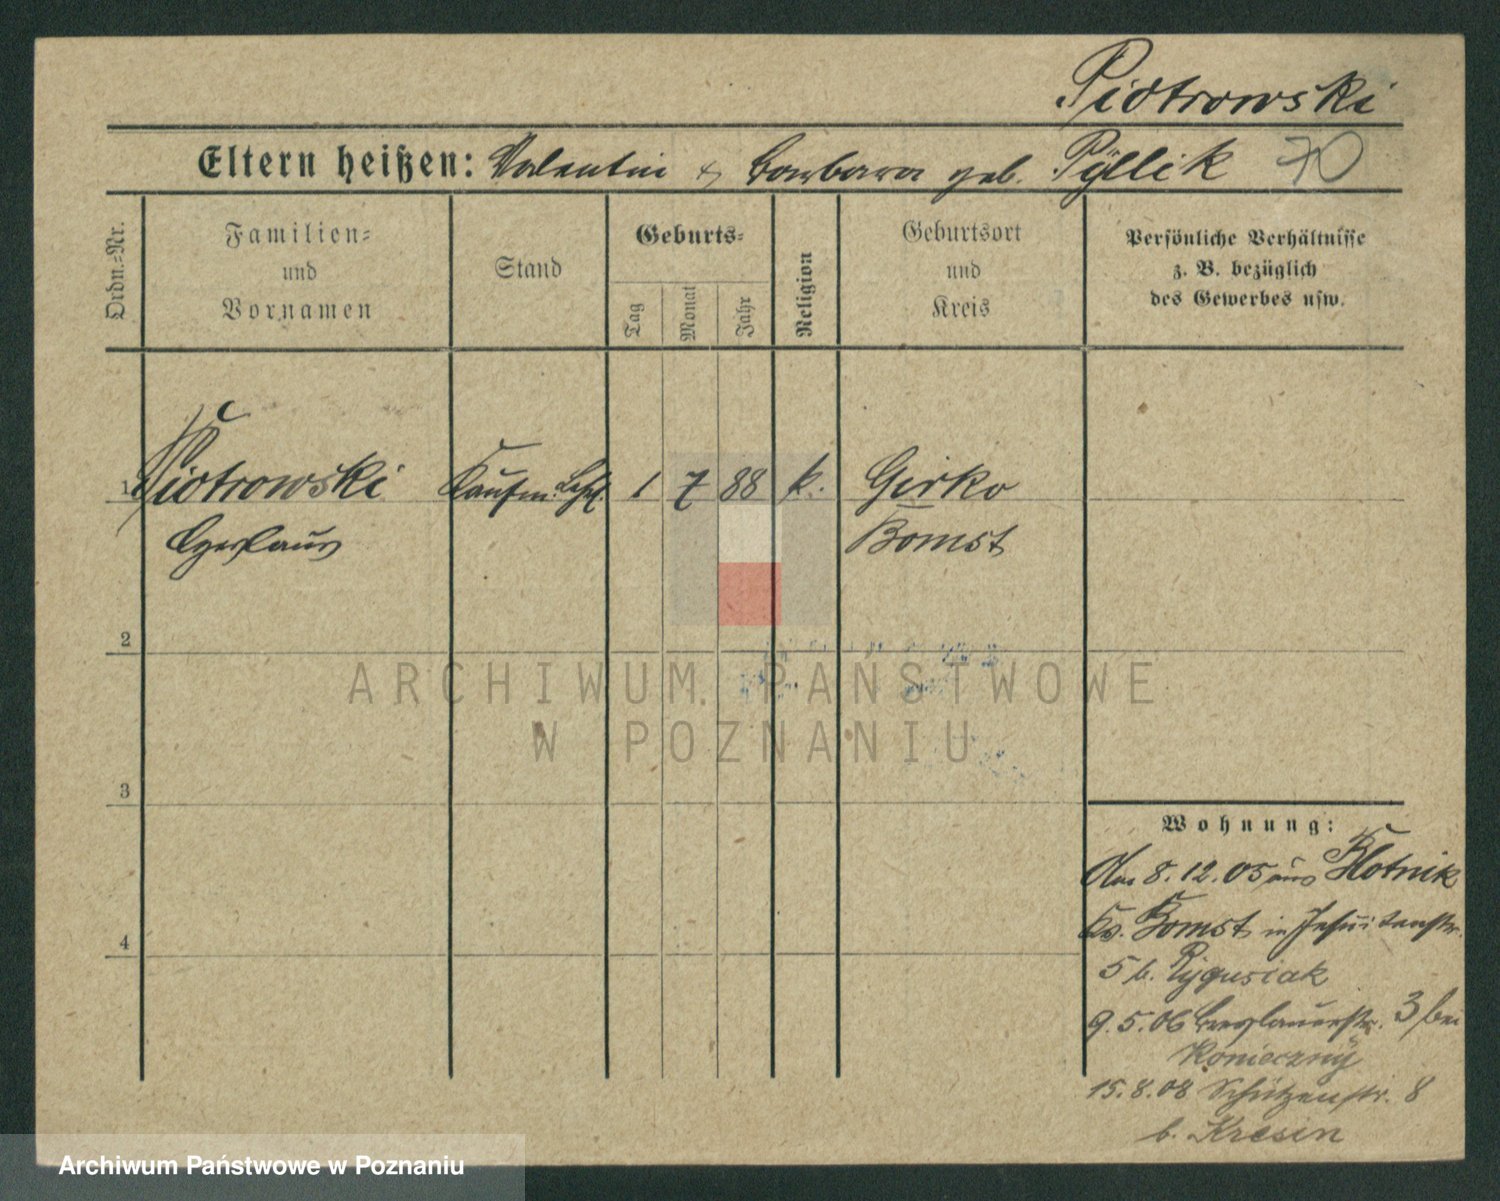 Piotrowski
Eltern heißen: Valentin & Barbara geb. Pyllik 70
Ordn.-Nr.
Familien-
und
Vornamen
Stand
Geburts-
Tag
Monat
Jahr
Religion
Geburtsort
und
Kreis
Persönliche Verhältnisse
z. B. bezüglich
des Gewerbes usw.
1 Piotrowski Kaufm. 1 7 88 k. Girko
Czeslaus Bomst
2
3
4
Wohnung:
Am 8.12.05 aus Blotnik
Kr. Bomst in Jesuitenstr.
5 b. Rygusiak
9.5.06 Breslauerstr. 3 bei
Konieczny
15.8.08 Schützenstr. 8
b. Kresin
ARCHIWUM PAŃSTWOWE
W POZNANIU
Archiwum Państwowe w Poznaniu